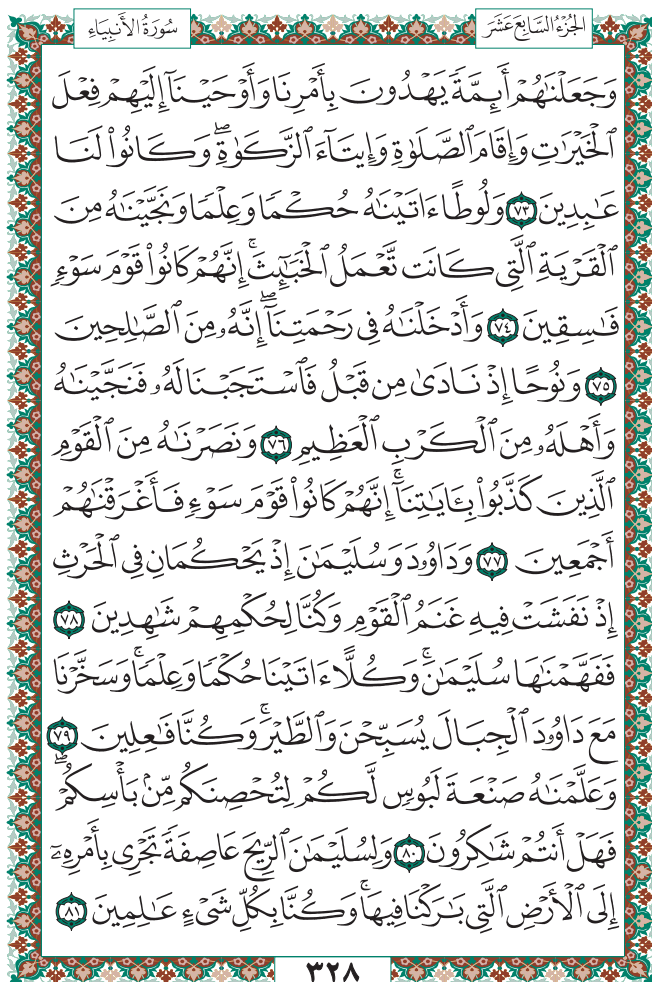 الجُزْءُ السَّابِعَ عَشَرَ
سُورَةُ الأَنبِيَاءِ
وَجَعَلْنَٰهُمْ أَئِمَّةً يَهْدُونَ بِأَمْرِنَا وَأَوْحَيْنَآ إِلَيْهِمْ فِعْلَ
ٱلْخَيْرَٰتِ وَإِقَامَ ٱلصَّلَوٰةِ وَإِيتَآءَ ٱلزَّكَوٰةِ ۖ وَكَانُوا۟ لَنَا
عَٰبِدِينَ ٧٣ وَلُوطًا ءَاتَيْنَٰهُ حُكْمًا وَعِلْمًا وَنَجَّيْنَٰهُ مِنَ
ٱلْقَرْيَةِ ٱلَّتِى كَانَت تَّعْمَلُ ٱلْخَبَٰٓئِثَ ۗ إِنَّهُمْ كَانُوا۟ قَوْمَ سَوْءٍ
فَٰسِقِينَ ٧٤ وَأَدْخَلْنَٰهُ فِى رَحْمَتِنَآ ۖ إِنَّهُۥ مِنَ ٱلصَّٰلِحِينَ
٧٥ وَنُوحًا إِذْ نَادَىٰ مِن قَبْلُ فَٱسْتَجَبْنَا لَهُۥ فَنَجَّيْنَٰهُ
وَأَهْلَهُۥ مِنَ ٱلْكَرْبِ ٱلْعَظِيمِ ٧٦ وَنَصَرْنَٰهُ مِنَ ٱلْقَوْمِ
ٱلَّذِينَ كَذَّبُوا۟ بِـَٔايَٰتِنَآ ۚ إِنَّهُمْ كَانُوا۟ قَوْمَ سَوْءٍ فَأَغْرَقْنَٰهُمْ
أَجْمَعِينَ ٧٧ وَدَاوُۥدَ وَسُلَيْمَٰنَ إِذْ يَحْكُمَانِ فِى ٱلْحَرْثِ
إِذْ نَفَشَتْ فِيهِ غَنَمُ ٱلْقَوْمِ وَكُنَّا لِحُكْمِهِمْ شَٰهِدِينَ ٧٨
فَفَهَّمْنَٰهَا سُلَيْمَٰنَ ۚ وَكُلًّا ءَاتَيْنَا حُكْمًا وَعِلْمًا ۚ وَسَخَّرْنَا
مَعَ دَاوُۥدَ ٱلْجِبَالَ يُسَبِّحْنَ وَٱلطَّيْرَ ۚ وَكُنَّا فَٰعِلِينَ ٧٩
وَعَلَّمْنَٰهُ صَنْعَةَ لَبُوسٍ لَّكُمْ لِتُحْصِنَكُم مِّنۢ بَأْسِكُمْ ۖ
فَهَلْ أَنتُمْ شَٰكِرُونَ ٨٠ وَلِسُلَيْمَٰنَ ٱلرِّيحَ عَاصِفَةً تَجْرِى بِأَمْرِهِۦٓ
إِلَى ٱلْأَرْضِ ٱلَّتِى بَٰرَكْنَا فِيهَا ۚ وَكُنَّا بِكُلِّ شَىْءٍ عَٰلِمِينَ ٨١
٣٢٨